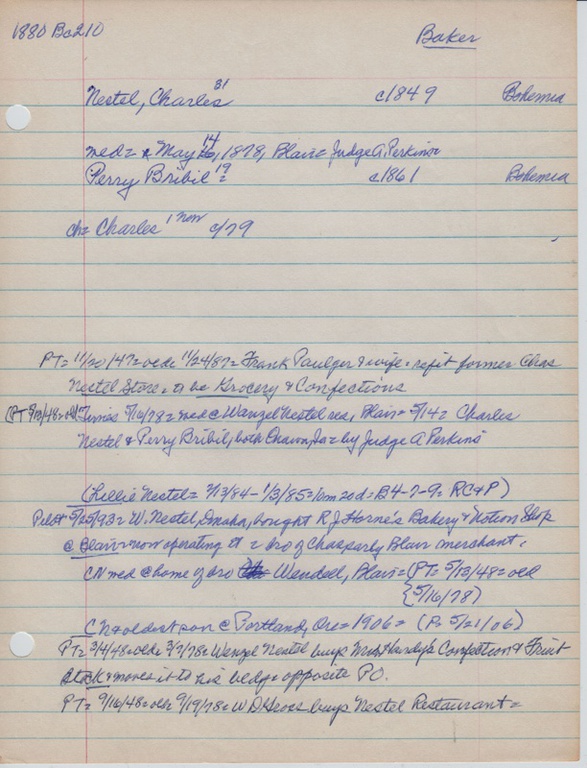 1880 Bo210 Baker
Nestel, Charles 31 c1849 Bohemia
med= May 14, 1878, Blair= Judge A. Perkins=
Perry Bribil 19= c1861 Bohemia
ch= Charles 1 now c/79
PT= 11/20/47= olde 11/24/87= Frank Paulger & wife= refit former Chas
Nestel Store= to be Grocery & Confections
(PT 5/13/48= old Times 5/16/78= med @ Wanzel Nestel res, Blair= 5/14= Charles
Nestel & Perry Bribil, both= by Judge A Perkins
(Lillie Nestel= 3/13/84-1/3/85=10m20d=B4-7-9= RC&P)
Pilot 5/25/93= W. Nestel, Omaha, bought R J Horne's Bakery & Notion Shop
@ Blair= now operating it= bro of Chas early Blair merchant.
CN med @ home of bro Wendell, Blair= (PT= 5/13/48= old
{5/16/78)
CN= oldest son @ Portland, Ore= 1906= (P= 5/21/06)
PT= 3/4/48= olde 3/7/78= Wenzel Nestel buys Mrs Hardy's Confection & Fruit
stock & moves it to his bldg= opposite PO.
PT= 9/16/48= olde 9/19/78= W D Gross buys Nestel Restaurant=